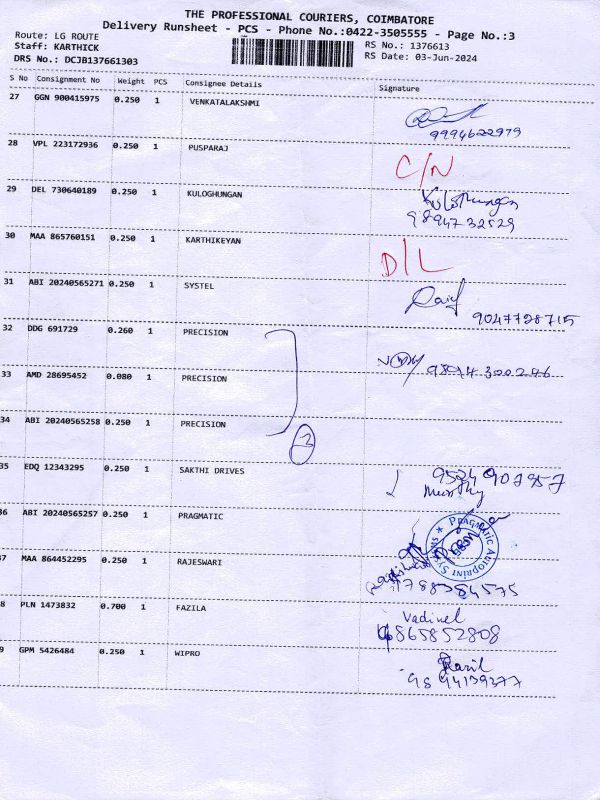 THE PROFESSIONAL COURIERS, COIMBATORE
Delivery Runsheet - PCS - Phone No.:0422-3505555 - Page No.:3
Route: LG ROUTE
RS No.: 1376613
Staff: KARTHICK
RS Date: 03-Jun-2024
DRS No.: DCJB137661303
S No Consignment No Weight PCS Consignee Details Signature
27 GGN 900415975 0.250 1 VENKATALAKSHMI
9994622979
28 VPL 223172936 0.250 1 PUSPARAJ C/N
29 DEL 730640189 0.250 1 KULOGHUNGAN Kulothungan
9894732529
30 MAA 865760151 0.250 1 KARTHIKEYAN D/L
31 ABI 20240565271 0.250 1 SYSTEL
9047728715
32 DDG 691729 0.260 1 PRECISION
9894300246
33 AMD 28695452 0.080 1 PRECISION
34 ABI 20240565258 0.250 1 PRECISION
35 EDQ 12343295 0.250 1 SAKTHI DRIVES 9524907957
Murthy
36 ABI 20240565257 0.250 1 PRAGMATIC
★ PRAGMATIC Autoprint Systems
37 MAA 864452295 0.250 1 RAJESWARI
38 PLN 1473832 0.700 1 FAZILA Vadivel
9865852808
39 GPM 5426484 0.250 1 WIPRO
9894139377